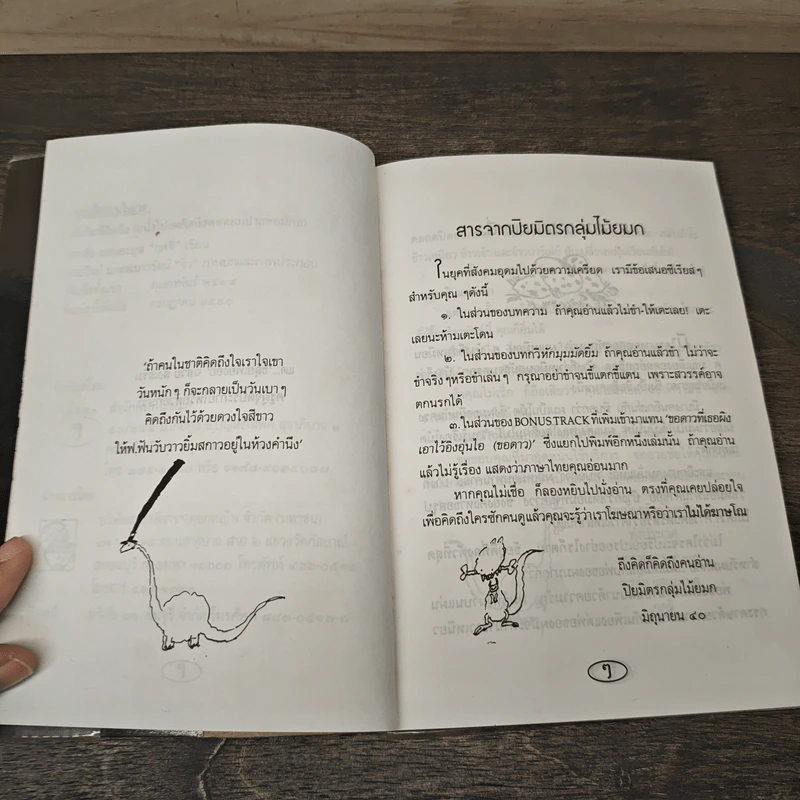 'ถ้าคนในชาติคิดถึงใจเราใจเขา
วันหนักๆ ก็จะกลายเป็นวันเบาๆ
คิดถึงกันไว้ด้วยดวงใจสีขาว
ให้ฟ.ฟันวับวาวยิ้มสกาวอยู่ในห้วงคำนึง'
สารจากปิยมิตรกลุ่มไม้ยมก
ในยุคที่สังคมอุดมไปด้วยความเครียด เรามีข้อเสนอซีเรียสๆ
สำหรับคุณ ๆดังนี้
๑. ในส่วนของบทความ ถ้าคุณอ่านแล้วไม่ขำ-ให้เตะเลย! เตะ
เลยนะห้ามเตะโดน
๒. ในส่วนของบทกวีหักมุมมัดยิ้ม ถ้าคุณอ่านแล้วขำ ไม่ว่าจะ
ขำจริงๆหรือขำเล่นๆ กรุณาอย่าขำจนขี้แตกขี้แตน เพราะสวรรค์อาจ
ตกนรกได้
๓. ในส่วนของ BONUS TRACK ที่เพิ่มเข้ามาแทน 'ขอดาวที่เธอผิง
เอาไว้อิงอุ่นไอ (ขอดาว)' ซึ่งแยกไปพิมพ์อีกหนึ่งเล่มนั้น ถ้าคุณอ่าน
แล้วไม่รู้เรื่อง แสดงว่าภาษาไทยคุณอ่อนมาก
หากคุณไม่เชื่อ ก็ลองหยิบไปนั่งอ่าน ตรงที่คุณเคยปล่อยใจ
เพื่อคิดถึงใครซักคนดูแล้วคุณจะรู้ว่าเราโฆษณาหรือว่าเราไม่ได้ฆาษโณ
ถึงคิดก็คิดถึงคนอ่าน
ปิยมิตรกลุ่มไม้ยมก
มิถุนายน ๔๐
ๆ